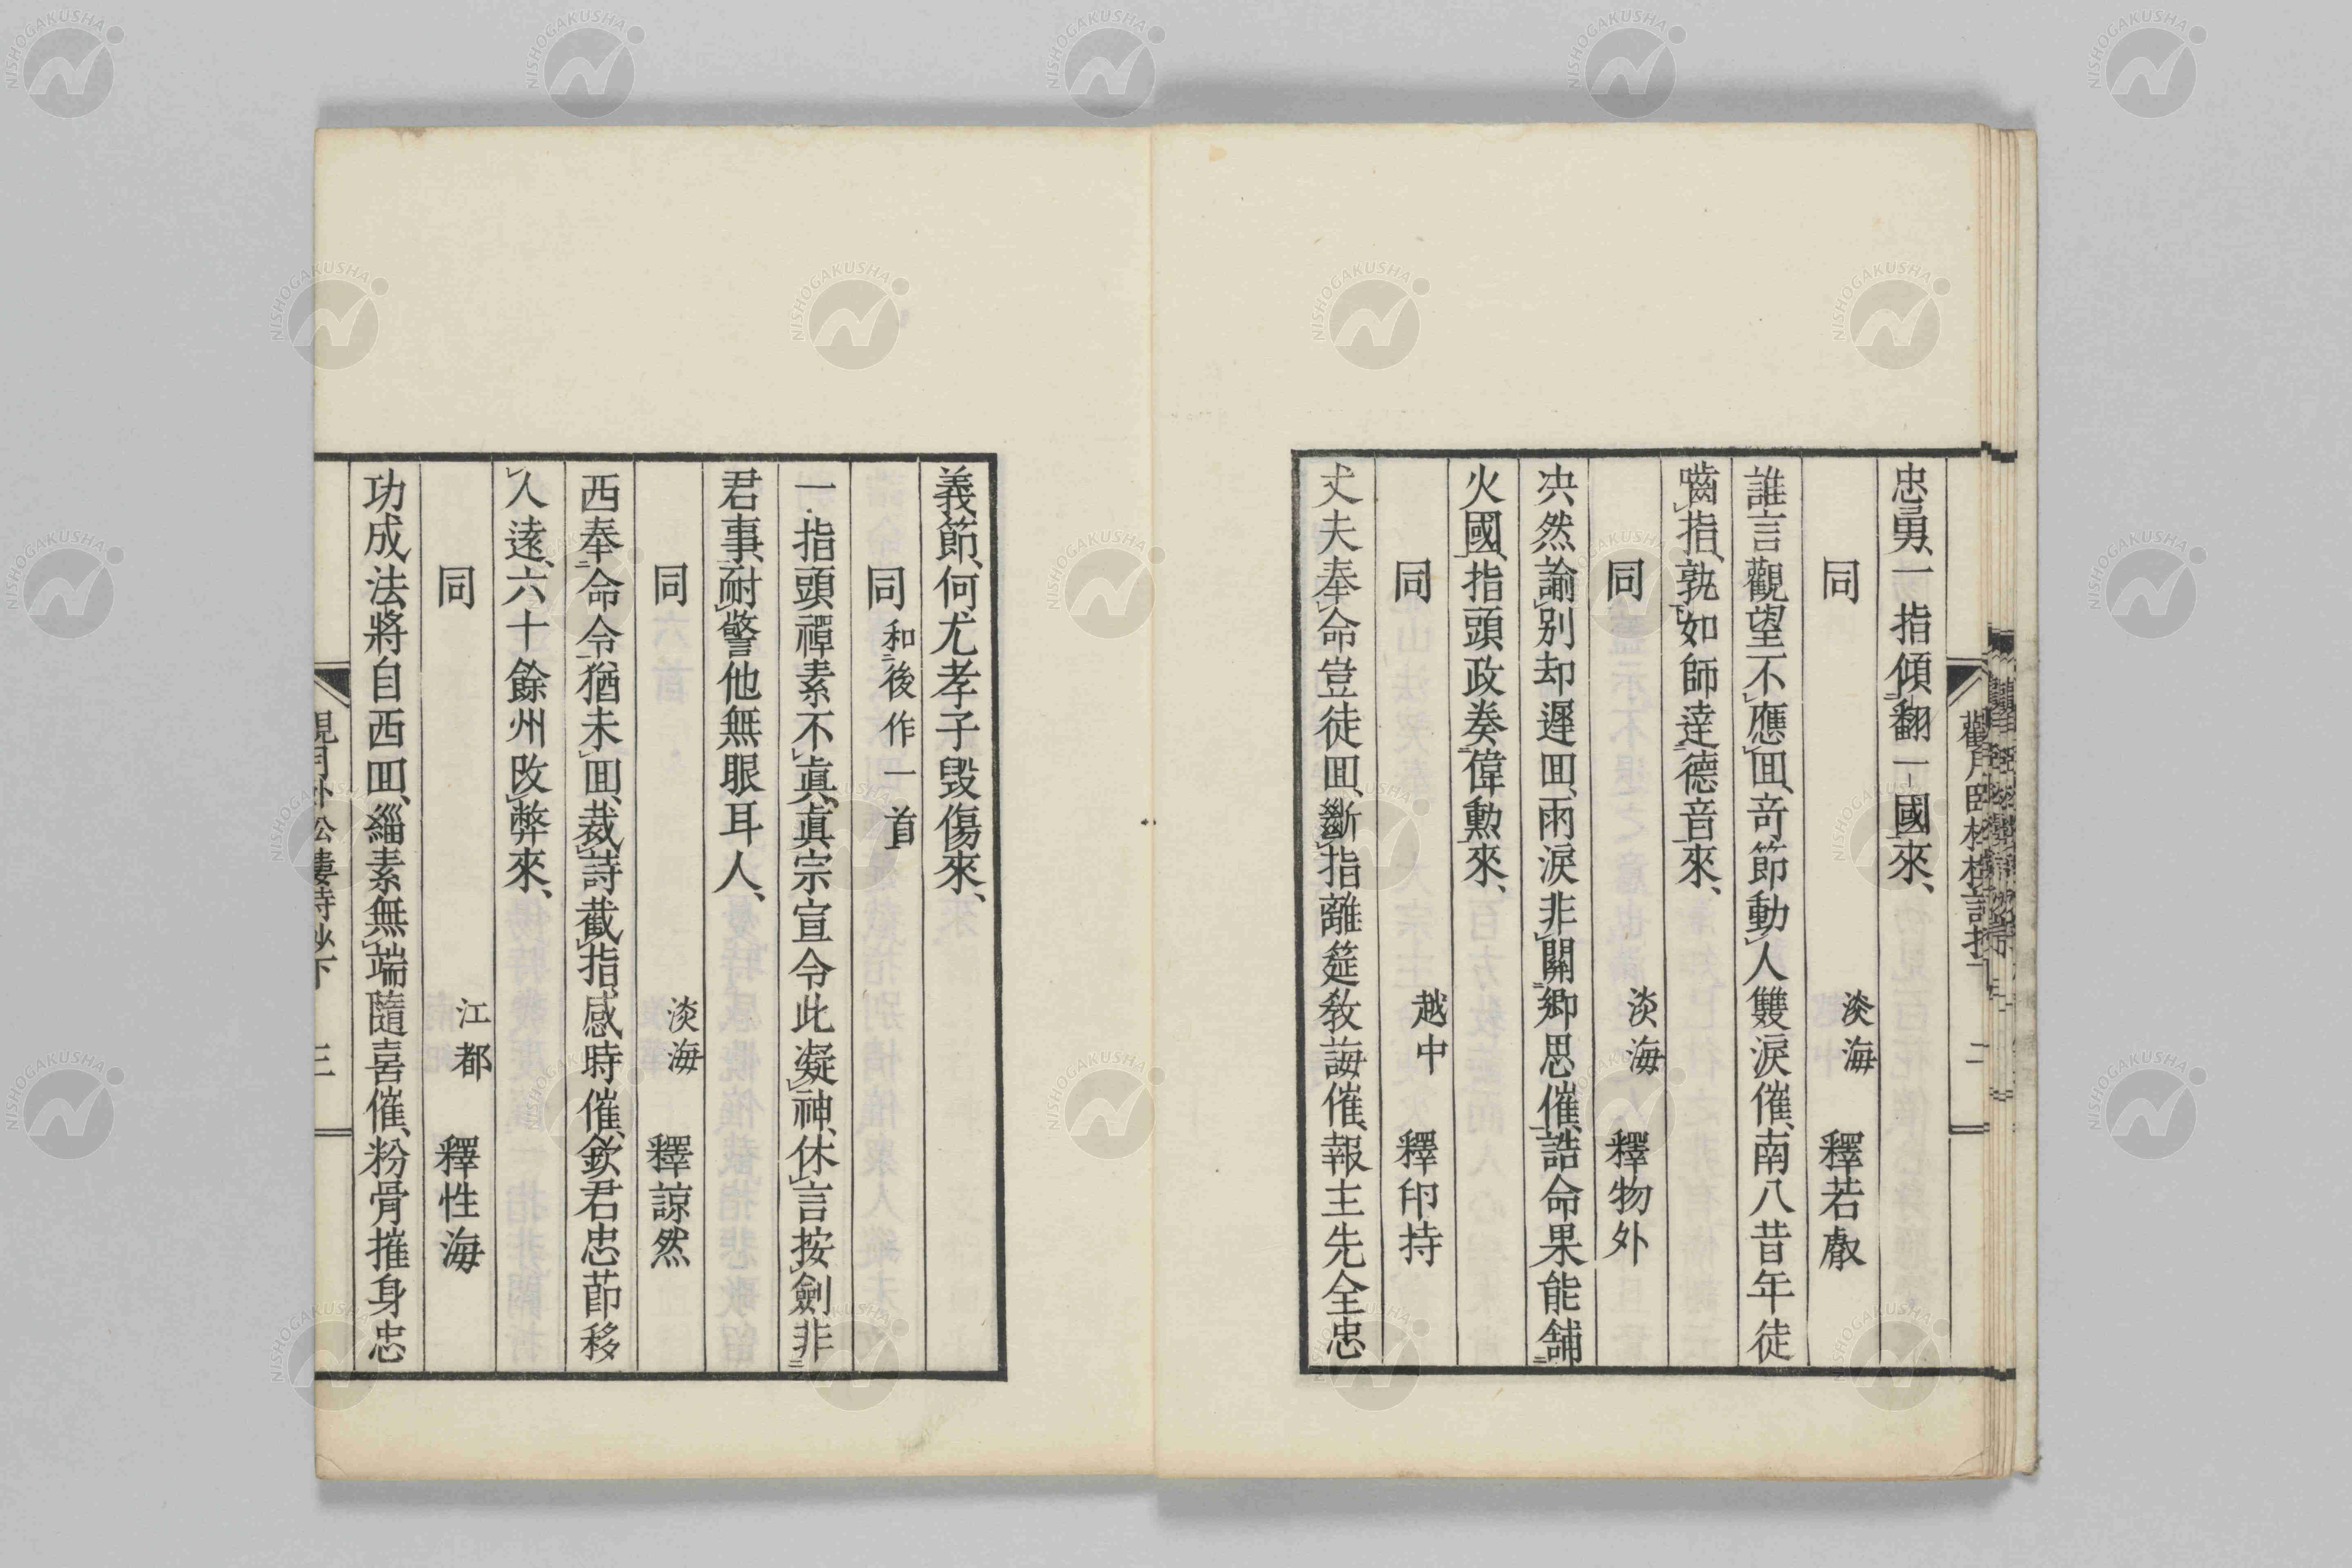 忠勇、一指傾翻一國來、
同 淡海 釋若皾
誰言觀望不應囬、奇節動人雙淚催、南八昔年徒
嚙指、孰如師達德音來、
同 淡海 釋物外
决然諭別却遲囬、兩淚非關鄉思催、誥命果能舗
火國、指頭政奏偉勲來、
同 越中 釋印持
丈夫奉命豈徒囬、斷指離筵敎誨催、報主先全忠
義節、何尤孝子毀傷來、
同 和後作一首
一指頭禪素不真、真宗宣令此凝神、休言按劍非
君事、耐警他無眼耳人、
同 淡海 釋諒然
西奉命令猶未囬、裁詩截指感時催、欽君忠節移
人遠、六十餘州改弊來、
同 江都 釋性海
功成法將自西囬、緇素無端隨喜催、粉骨摧身忠
三
NISHOGAKUSHA